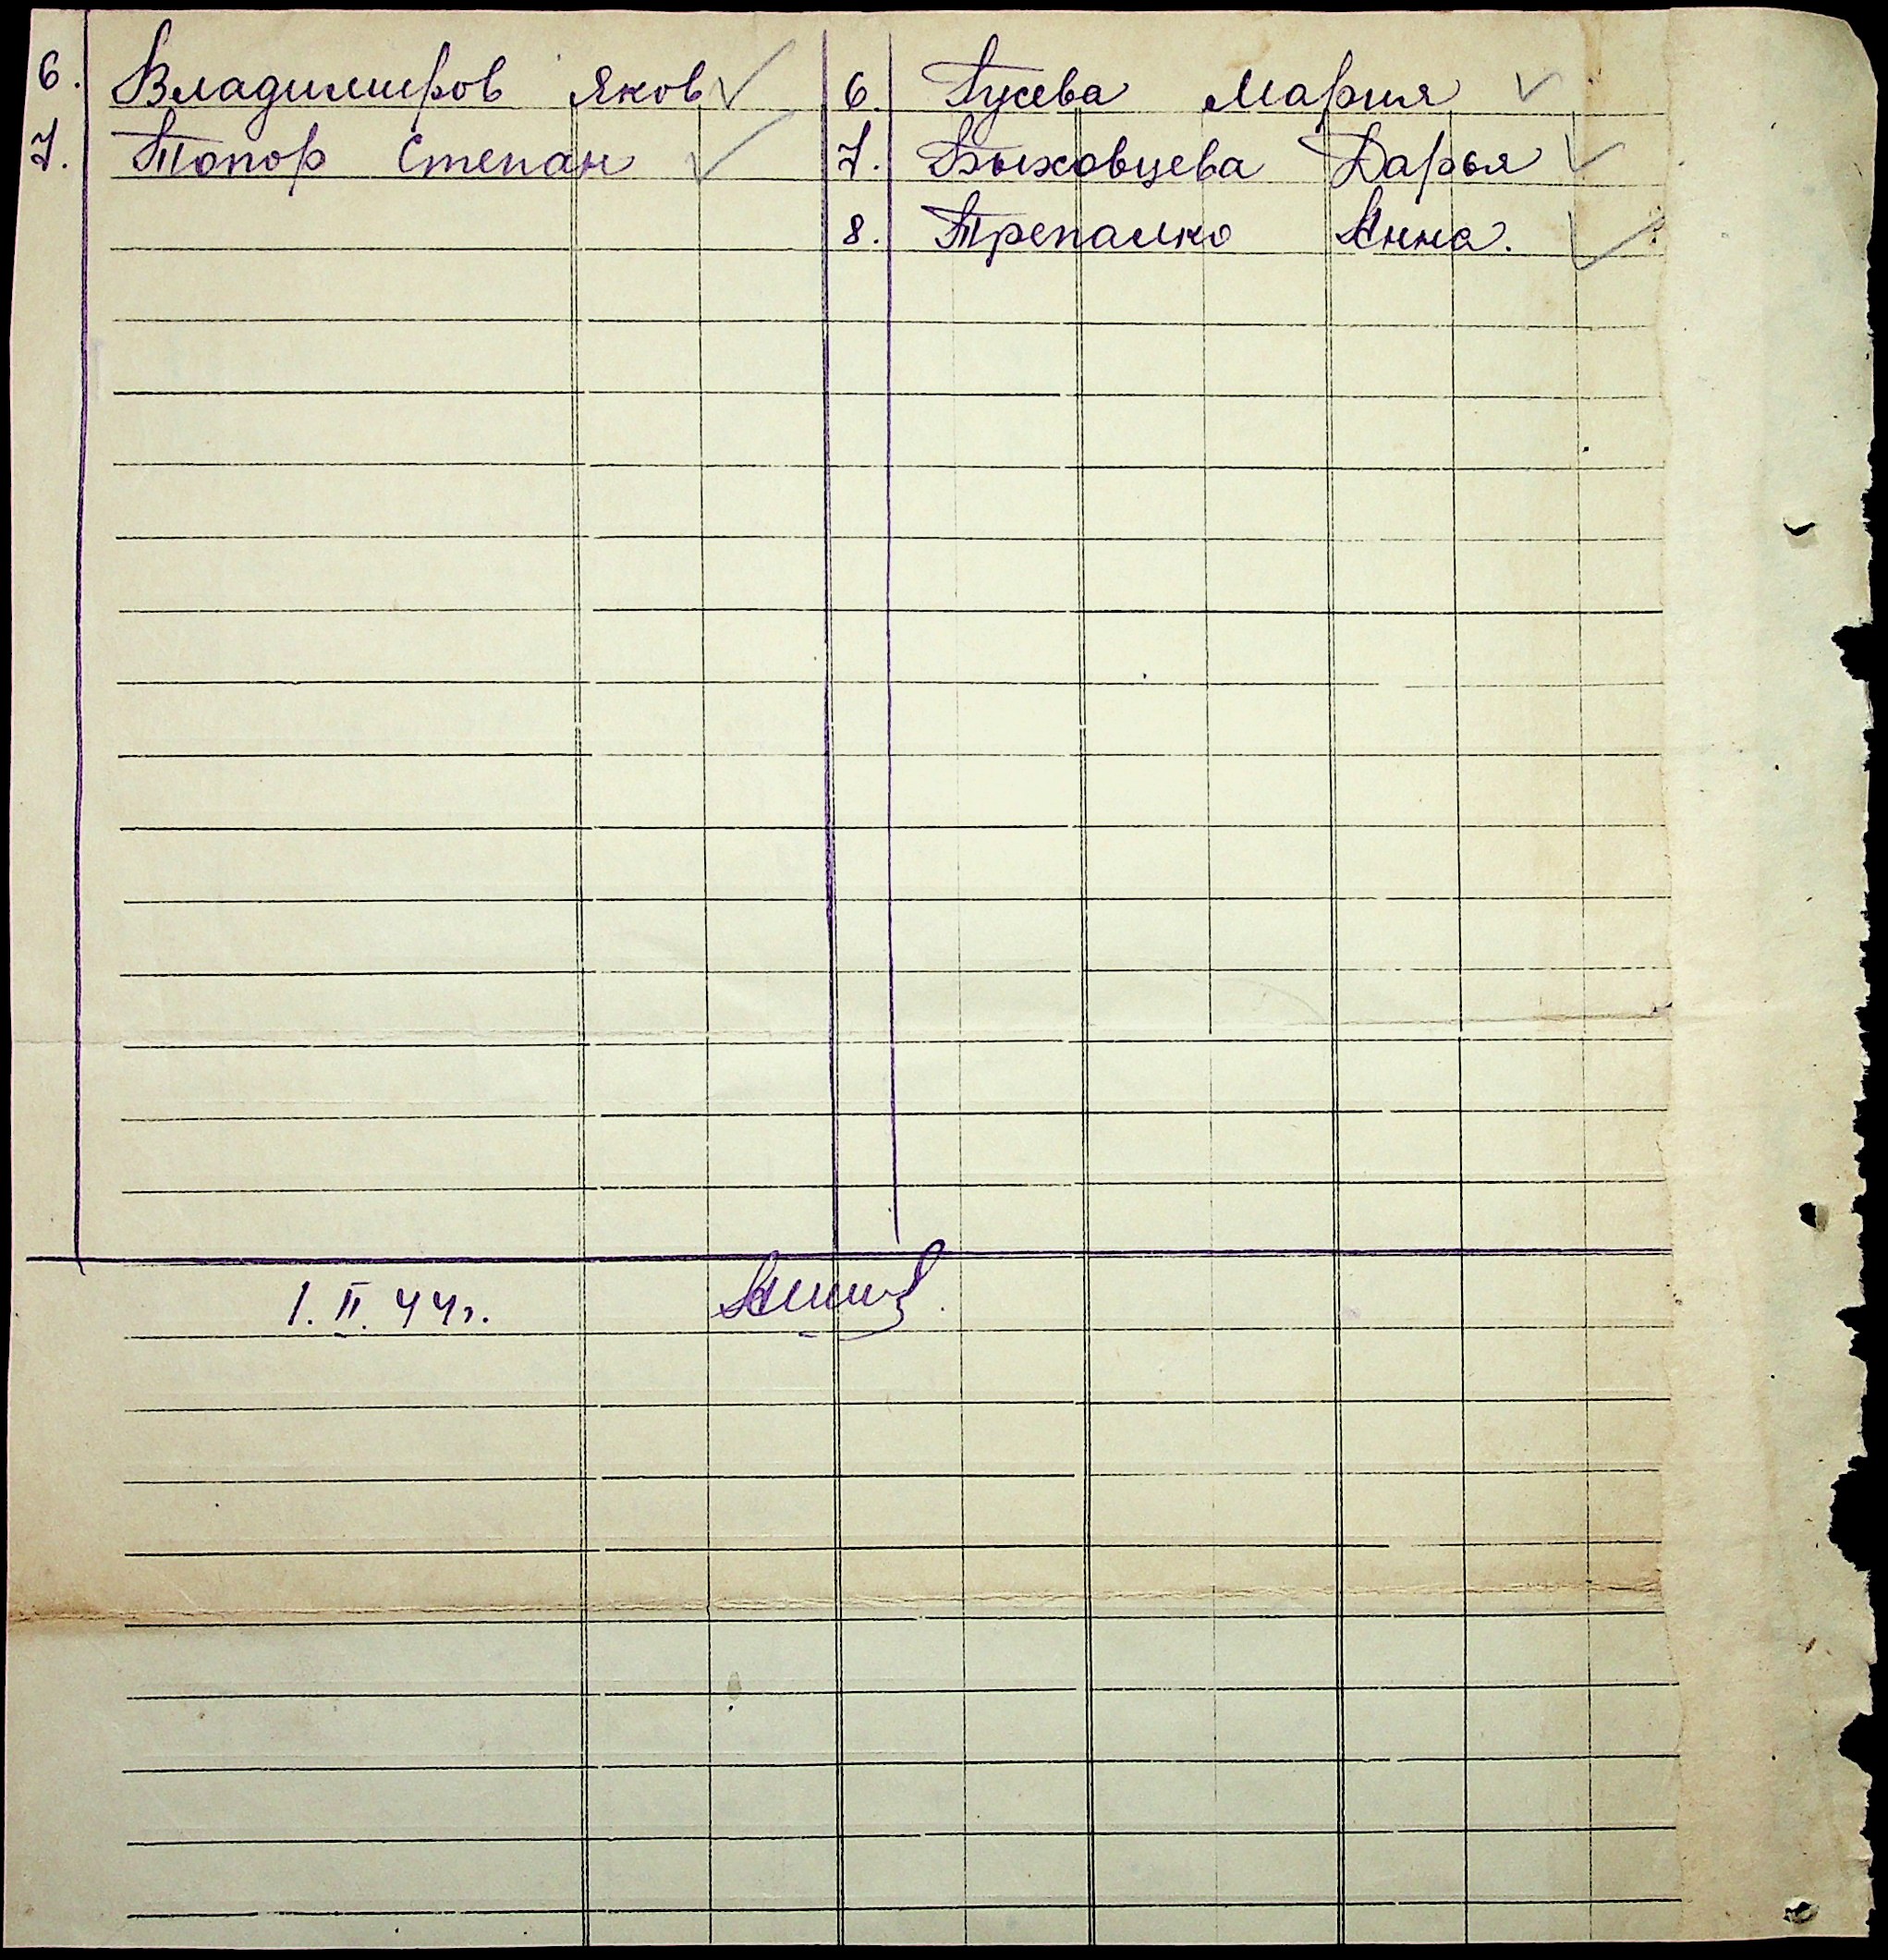 6. Владимиров Яков ✓ 6. Гусева Мария ✓
7. Топор Степан ✓ 7. Быховцева Дарья ✓
8. Трепалко Анна. ✓
1. II. 44 г.